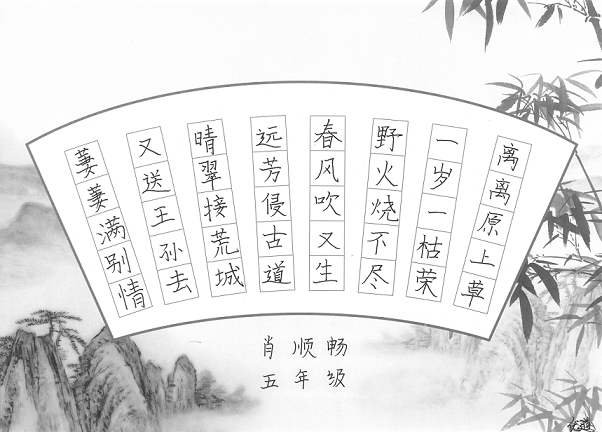 离离原上草
一岁一枯荣
野火烧不尽
春风吹又生
远芳侵古道
晴翠接荒城
又送王孙去
萋萋满别情
肖顺畅
五年级